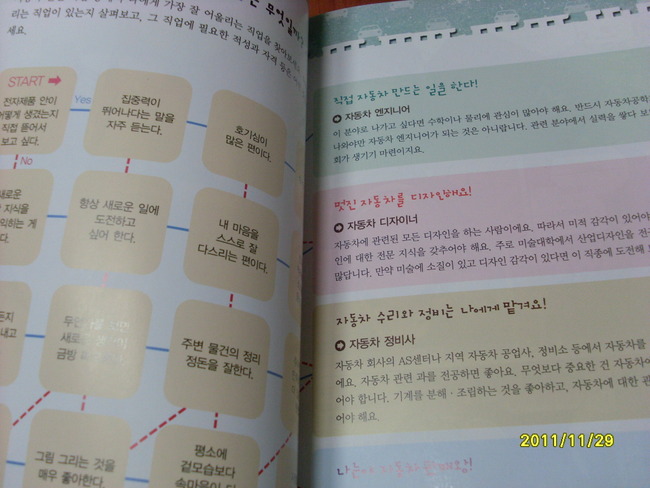 무엇일까
가장 잘 어울리는 직업을 찾아보
리는 직업이 있는지 살펴보고, 그 직업에 필요한 적성과 자격 등은
세요.
START
전자제품 안이
어떻게 생겼는지
직접 뜯어서
보고 싶다.
Yes
No
집중력이
뛰어나다는 말을
자주 듣는다.
호기심이
많은 편이다.
새로운
지식을
익히는 게
다.
항상 새로운 일에
도전하고
싶어 한다.
내 마음을
스스로 잘
다스리는 편이다.
내고
새로
금방
주변 물건의 정리
정돈을 잘한다.
그림 그리는 것을
매우 좋아한다.
평소에
겉모습보다
속마음이 더
직접 자동차 만드는 일을 한다!
자동차 엔지니어
이 분야로 나가고 싶다면 수학이나 물리에 관심이 많아야 해요. 반드시 자동차공학
나와야만 자동차 엔지니어가 되는 것은 아니랍니다. 관련 분야에서 실력을 쌓다 보
회가 생기기 마련이지요.
멋진 자동차를 디자인해요!
자동차 디자이너
자동차에 관련된 모든 디자인을 하는 사람이에요. 따라서 미적 감각이 있어야
인에 대한 전문 지식을 갖추어야 해요. 주로 미술대학에서 산업디자인을 전
많답니다. 만약 미술에 소질이 있고 디자인 감각이 있다면 이 직종에 도전해
자동차 수리와 정비는 나에게 맡겨요!
자동차 정비사
자동차 회사의 AS센터나 지역 자동차 공업사, 정비소 등에서 자동차를
에요. 자동차 관련 과를 전공하면 좋아요. 무엇보다 중요한 건 자동차에
어야 합니다. 기계를 분해·조립하는 것을 좋아하고, 자동차에 대한 관
어야 해요.
2011/11/29